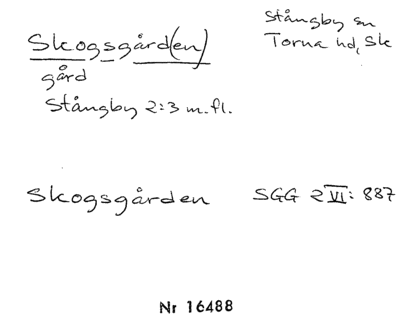 Skogsgård(en)
Stångby sn
Torna hd, Sk
gård
Stångby 2:3 m.fl.
Skogsgården SGG 2 VI: 887
Nr 16488